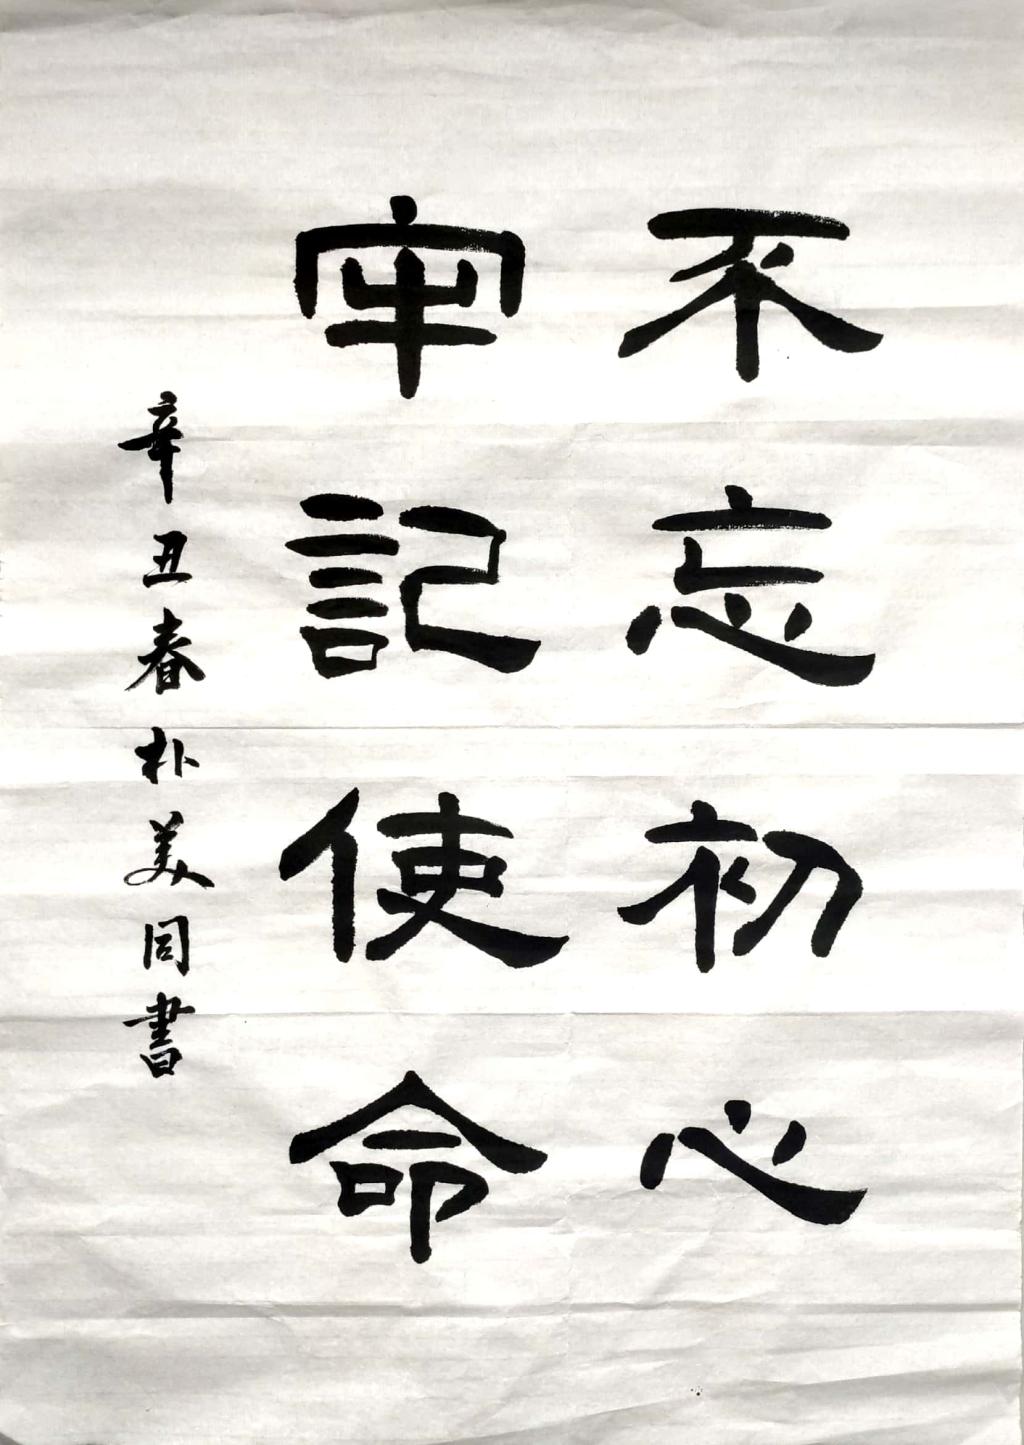 不忘初心
牢記使命
辛丑春朴美同書